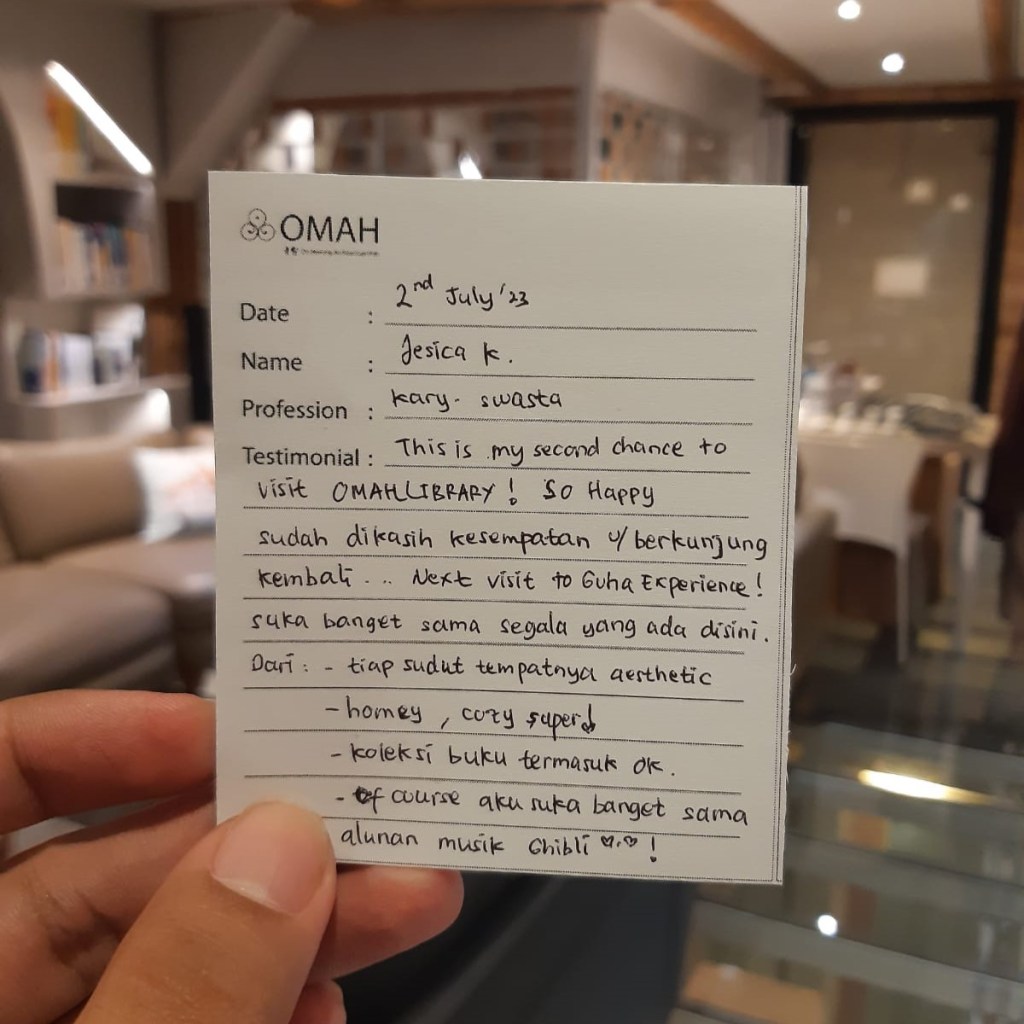 OMAH
Date : 2nd July '23
Name : Jesica K.
Profession : Kary. swasta
Testimonial : This is my second chance to
visit OMAH LIBRARY! So Happy
sudah dikasih kesempatan u/ berkunjung
kembali ... Next visit to Guha Experience!
suka banget sama segala yang ada disini.
Dari : - tiap sudut tempatnya aesthetic
- homey, cozy super!
- koleksi buku termasuk ok.
- of course aku suka banget sama
alunan musik Ghibli ♡.♡ !